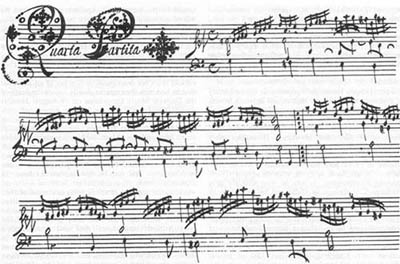 Quarta Partita